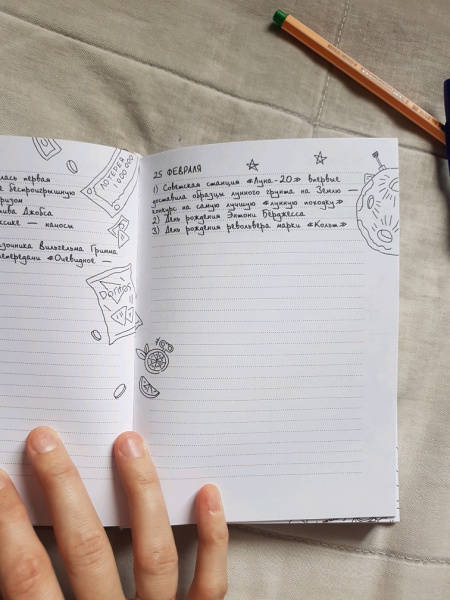 лась первая
е беспроигрышную
ризом
ива Джобса
ксике — начосы
азочника Вильгельма Гримма
епередачи «Очевидное —
ЛОТЕРЕЯ
1 000 000
Doritos
25 ФЕВРАЛЯ
1) Советская станция «Луна-20» впервые
доставила образцы лунного грунта на Землю —
конкурс на самую лучшую «лунную походку»
2) День рождения Энтони Бёрджесса
3) День рождения револьвера марки «Кольт»